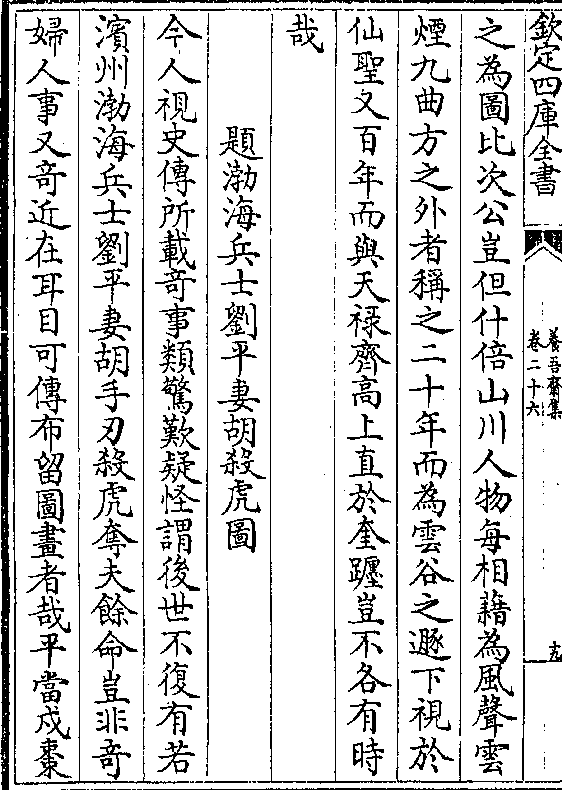 欽定四庫全書
養吾齋集
卷二十六
十九
之為圖比次公豈但什倍山川人物每相藉為風聲雲
煙九曲方之外者稱之二十年而為雲谷之遯下視於
仙聖又百年而與天祿齊高上直於奎躔豈不各有時
哉
題渤海兵士劉平妻胡殺虎圖
今人視史傳所載奇事類驚歎疑怪謂後世不復有若
濱州渤海兵士劉平妻胡手刃殺虎奪夫餘命豈非奇
婦人事又奇近在耳目可傳布留圖畫者哉平當戍棗